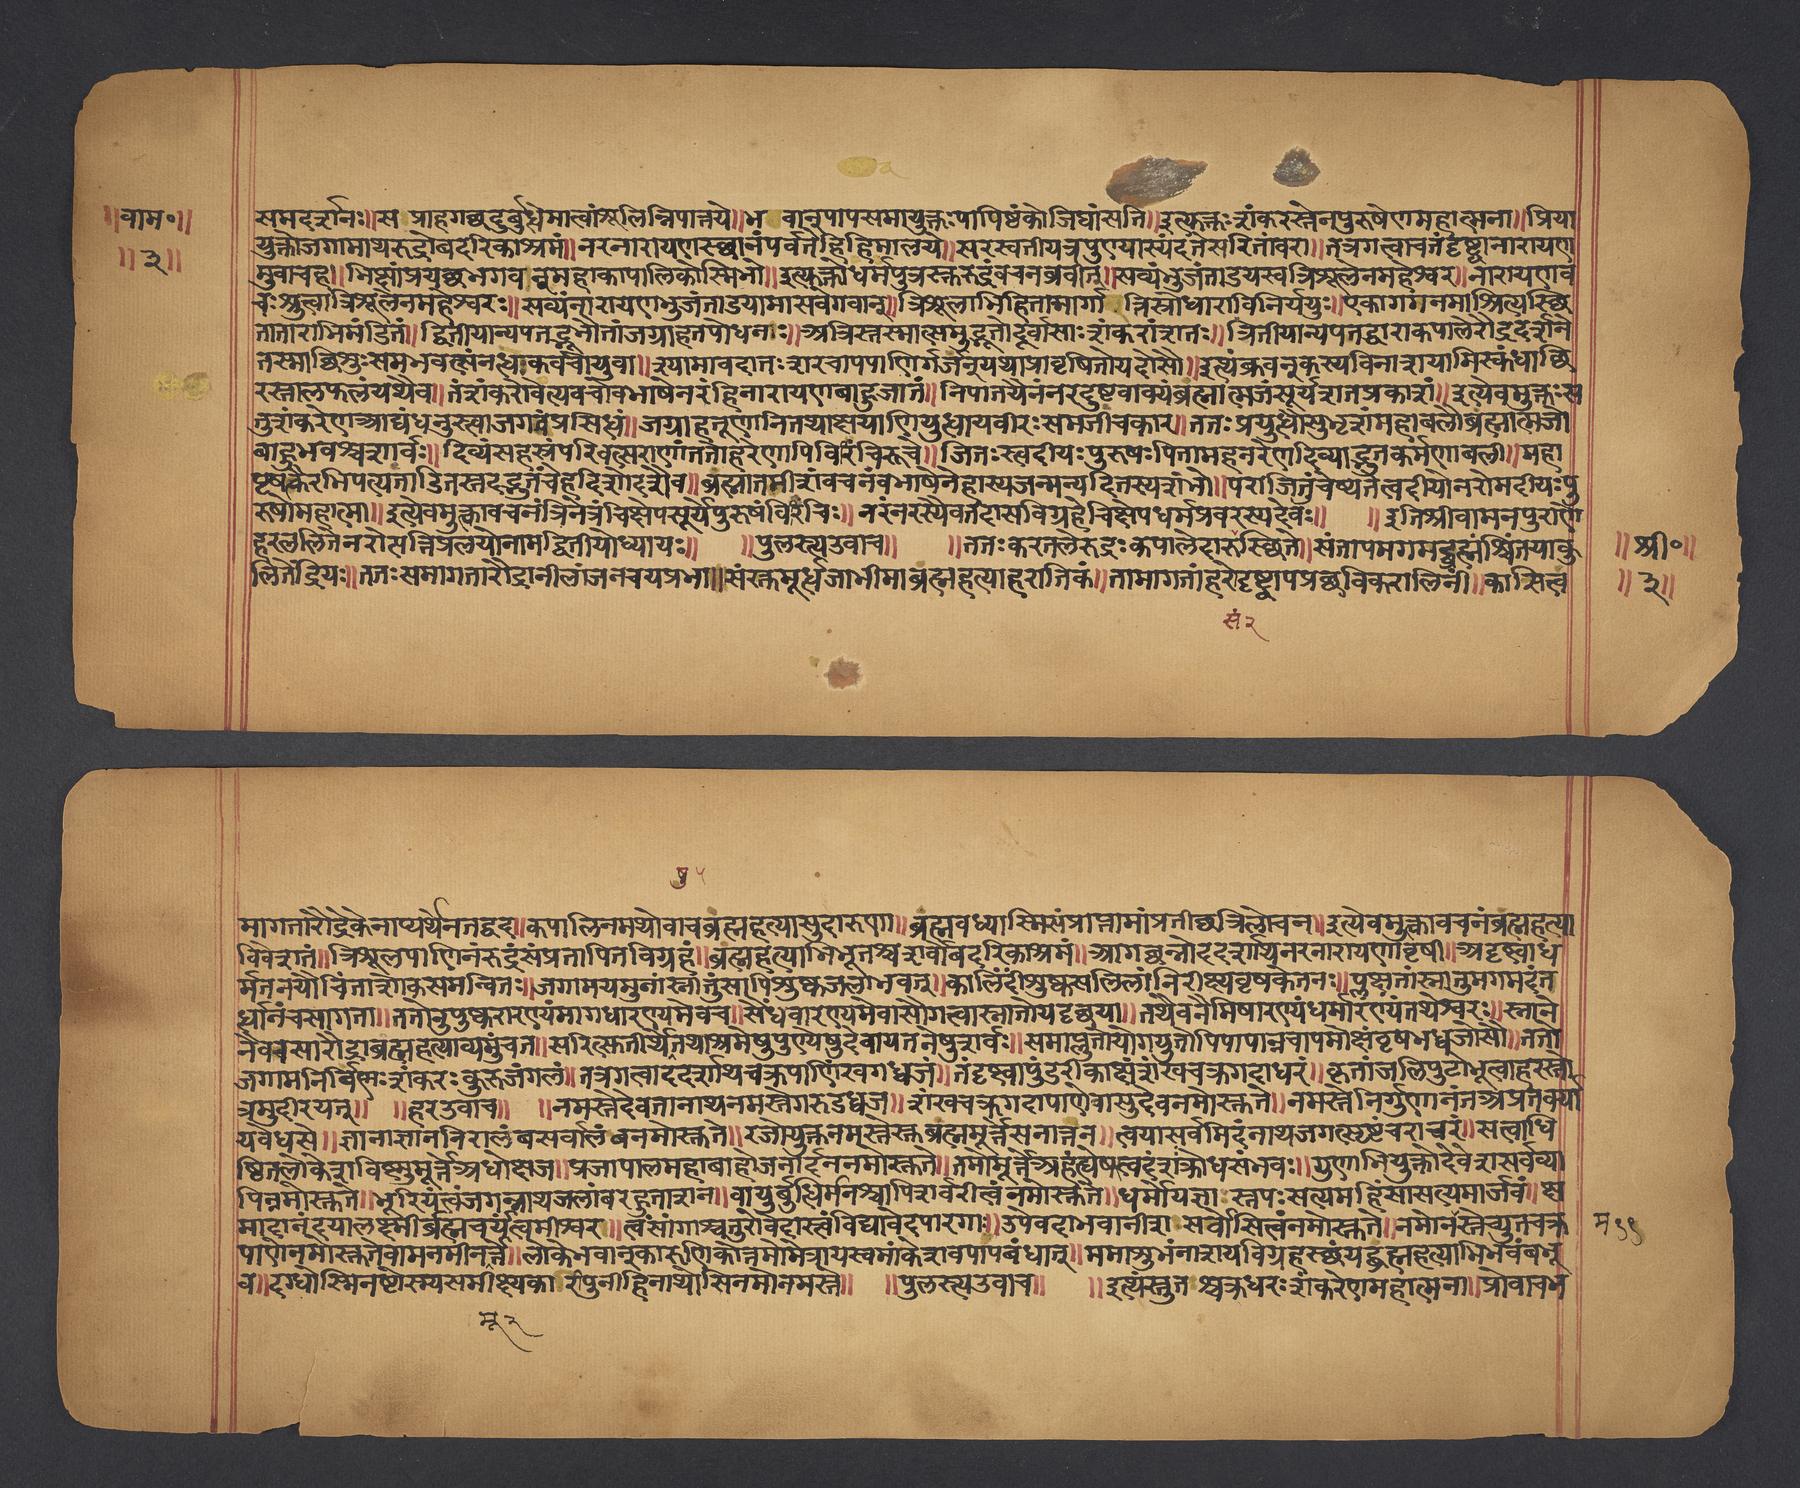 ॥वाम॰॥
॥३॥
समदर्शनः॥स प्राहगच्छदुर्बुधेमात्वांशूलिन्निपातये॥भ वान्पापसमायुक्तःपापिष्ठंकोजिघांसति॥इत्युक्तःशंकरस्तेनपुरुषेणमहात्मना॥प्रिया
युक्तोजगामाथरुद्रोबदरिकाश्रमं॥नरनारायणस्थानंपर्वतेहिहिमालये॥सरस्वतीयत्रपुण्यास्यंदतेसरितांवरा॥तत्रगत्वाचतंदृष्ट्वानारायण
मुवाचह॥भिक्षांप्रयच्छभगवन्महाकापालिकोस्मिभो॥इत्युक्तोधर्मपुत्रस्तरुद्रंवचनब्रवीत्॥सव्यंभुजंताडयस्वत्रिशूलेनमहेश्वर॥नारायणव
चःश्रुत्वात्रिशूलेनमहेश्वरः॥सव्यंनारायणभुजंताडयामासवेगवान्॥त्रिशूलाभिहितान्मार्गा त्तिस्रोधाराविनिर्ययुः॥एकागगनमाश्रित्यस्थि
ताताराभिमंडितां॥द्वितीयान्यपतद्भूमौतांजग्राहतपोधनः॥अत्रिस्तस्मात्समुद्भूतोदूर्वासाःशंकरांशतः॥त्रितीयान्यपतद्धाराकपालेरौद्रदर्शने
तस्माच्छिशुःसमभवत्संनद्धाकवचोयुवा॥श्यामावदातःशरचापपाणिर्गर्जन्यथाप्रावृषितोयदोसौ॥इत्थंब्रुवन्कस्यविनाशयामिस्कंधाच्छि
रस्तालफलंयथैव॥तंशंकरोवेत्यवचोबभाषेनरंहिनारायणबाहुजातं॥निपातयैनंनरदुष्टवाक्यंब्रह्मात्मजंसूर्यशतप्रकाशं॥इत्येवमुक्तःस
तुशंकरेणआद्यंधनुस्त्वाजगवंप्रसिधं॥जग्राहतूणानितथाक्षयाणियुध्धायवीरःसमतीचकार॥ततःप्रयुध्धौसुभृशंमहाबलौब्रह्मात्मजो
बाहुभवश्चशार्वः॥दिव्यंसहस्रंपरिवत्सराणांततोहरेणापिविरंचिरूचे॥जितःस्त्वदीयःपुरुषःपितामहनरेणदिव्याद्भुतकर्मणाबली॥महा
पृषत्कैरभिपत्यताडितस्तदद्भुतंचेहदिशोदशैव॥ब्रह्मातमीशंवचनंबभाषेनेहास्यजन्मन्यदितस्यशंभो॥पराजितंचेष्यतेत्वदीयोनरोमदीयःपु
रुषोमहात्मा॥इत्येवमुक्त्वावचनंत्रिनेत्रंचिक्षेपसूर्येपुरुषंविरंचिः॥नरंनरस्यैवतदासविग्रहेचिक्षेपधर्मप्रवरस्यदेवः॥ ॥इतिश्रीवामनपुराणे
हरललितेनरोसत्तिप्रलयोनामद्वितीयोध्यायः॥ ॥पुलस्त्यउवाच॥ ॥ततःकरतलेरुद्रःकपालेदारुस्थिते॥संतापमगमद्ब्रह्मंश्चिंतयाकु
लितेंद्रियः॥ततःसमागतारौद्रानीलांजनचयप्रभा॥संरक्तमूर्ध्धजाभीमाब्रह्महत्याहरांतिकं॥तामागतांहरोदृष्ट्वापप्रच्छविकरालिनीं॥कासित्व
॥श्री॰॥
॥३॥
सं२
षु५
मागतारौद्रेकेनाप्यर्थेनतद्वद॥कपालिनमथोवाचब्रह्महत्यासुदारुणा॥ब्रह्मवध्यास्मिसंप्राप्तामांप्रतीच्छत्रिलोचन॥इत्येवमुक्त्वावचनंब्रह्महत्या
विवेशतं॥त्रिशूलपाणिनंरुद्रंसंप्रतापितविग्रहं॥ब्रह्महत्याभिभूतश्चशर्वोबदरिकाश्रमं॥आगच्छन्तोददर्शाथनरनारायणावृषी॥अदृष्ट्वाध
र्मतनयौचिंताशोकसमन्वितः॥जगामयमुनांस्नातुंसापिशुष्कजलाभवत्॥कालिंदींशुष्कसलिलांनिरीक्ष्यवृषकेतनः॥प्लक्षजांस्नातुमगमदंत
र्ध्धानंचसागता॥ततोनुपुष्करारण्यंमागधारण्यमेवच॥सैंधवारण्यमेवासौगत्वास्नातोयदृच्छया॥तथैवनैमिषारण्यंधर्मारण्यंतथेश्वरः॥स्नातो
नैवचसारौद्राब्रह्महत्याव्यमुंचत॥सरित्सुतीर्थेतथाश्रमेषुपुण्येषुदेवायतनेषुशर्वः॥समाप्लुतोयोगयुतोपिपापान्नचापमोक्षंवृषभध्वजोसौ॥ततो
जगामनिर्विण्णःशंकरःकुरुजंगलं॥तत्रगत्वाददर्शाथचक्रपाणिंखगध्वजं॥तंदृष्ट्वापुंडरीकाक्षंशंखचक्रगदाधरं॥कृतांजलिपुटोभूत्वाहरस्तो
त्रमुदीरयत्॥ ॥हरउवाच॥ ॥नमस्तेदेवतानाथनमस्तेगरुडध्वज॥शंखचक्रगदापाणेवासुदेवनमोस्तुते॥नमस्तेनिर्गुणानंतअप्रतर्क्या
यवेधसे॥ज्ञानाज्ञाननिरालंबसर्वालंबनमोस्तुते॥रजोयुक्तनमस्तेस्तुब्रह्ममूर्त्तेसनातन॥त्वयासर्वमिदंनाथजगत्सृष्टंचराचरं॥सत्वाधि
ष्ठितलोकेशविष्णुमूर्त्तेअधोक्षज॥प्रजापालमहाबाहोजनार्दननमोस्तुते॥तमोमूर्त्तेअहंत्वेषत्वदंशक्रोधसंभवः॥गुणाभियुक्तोदेवेशसर्वव्या
पिन्नमोस्तुते॥भूरियंत्वंजगन्नाथजलांबरहुताशनः॥वायुर्बुध्धिर्मनश्चापिशर्वरीत्वंनमोस्तुते॥धर्मोयज्ञा स्तपःसत्यमहिंसासत्यमार्जवं॥क्ष
मादानंदयालक्ष्मीर्ब्रह्मचर्यंत्वमीश्वर॥त्वंसांगाश्चतुरोवेदास्त्वंविद्यावेदपारगा॥उपवेदाभवानीश सर्वोसित्वंनमोस्तुते॥नमोनमस्तेच्युतचक्र
पाणेनमोस्तुतेवामनमीनमूर्त्ते॥लोकेभवान्कारुणिकोन्मतोमेत्रायस्वमांकेशवपापबंधान्॥ममाशुभंनाशयविग्रहस्थंयद्ब्रह्महत्याभिभवंबभू
व॥दग्धोस्मिनष्टोस्म्यसमीक्ष्यका रीपुनीहिनाथोसिनमोनमस्ते॥ ॥पुलस्त्यउवाच॥ ॥इत्थंस्तुत श्चक्रधरःशंकरेणमहात्मना॥प्रोवाचभ
मू२